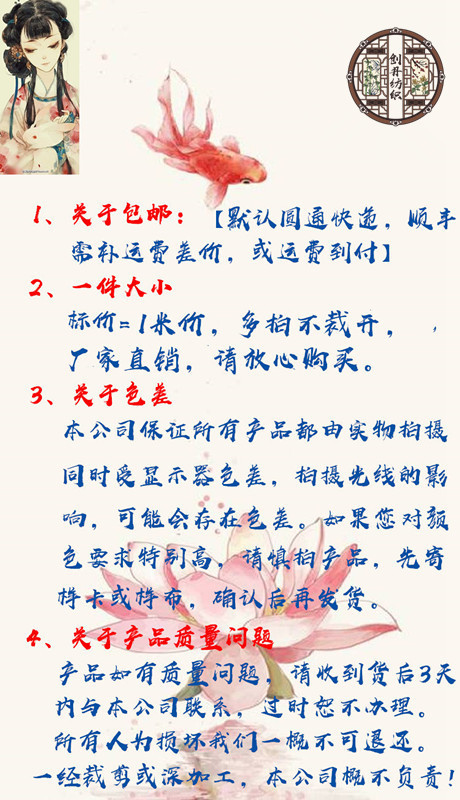 创丹纺织
1、关于包邮：【默认圆通快递，顺丰
需补运费差价，或运费到付】
2、一件大小
标价=1米价，多拍不裁开，，
厂家直销，请放心购买。
3、关于色差
本公司保证所有产品都由实物拍摄
同时受显示器色差，拍摄光线的影
响，可能会存在色差。如果您对颜
色要求特别高，请慎拍产品，先寄
样卡或样布，确认后再发货。
4、关于产品质量问题
产品如有质量问题，请收到货后3天
内与本公司联系，过时恕不办理。
所有人为损坏我们一概不可退还。
一经裁剪或深加工，本公司概不负责！